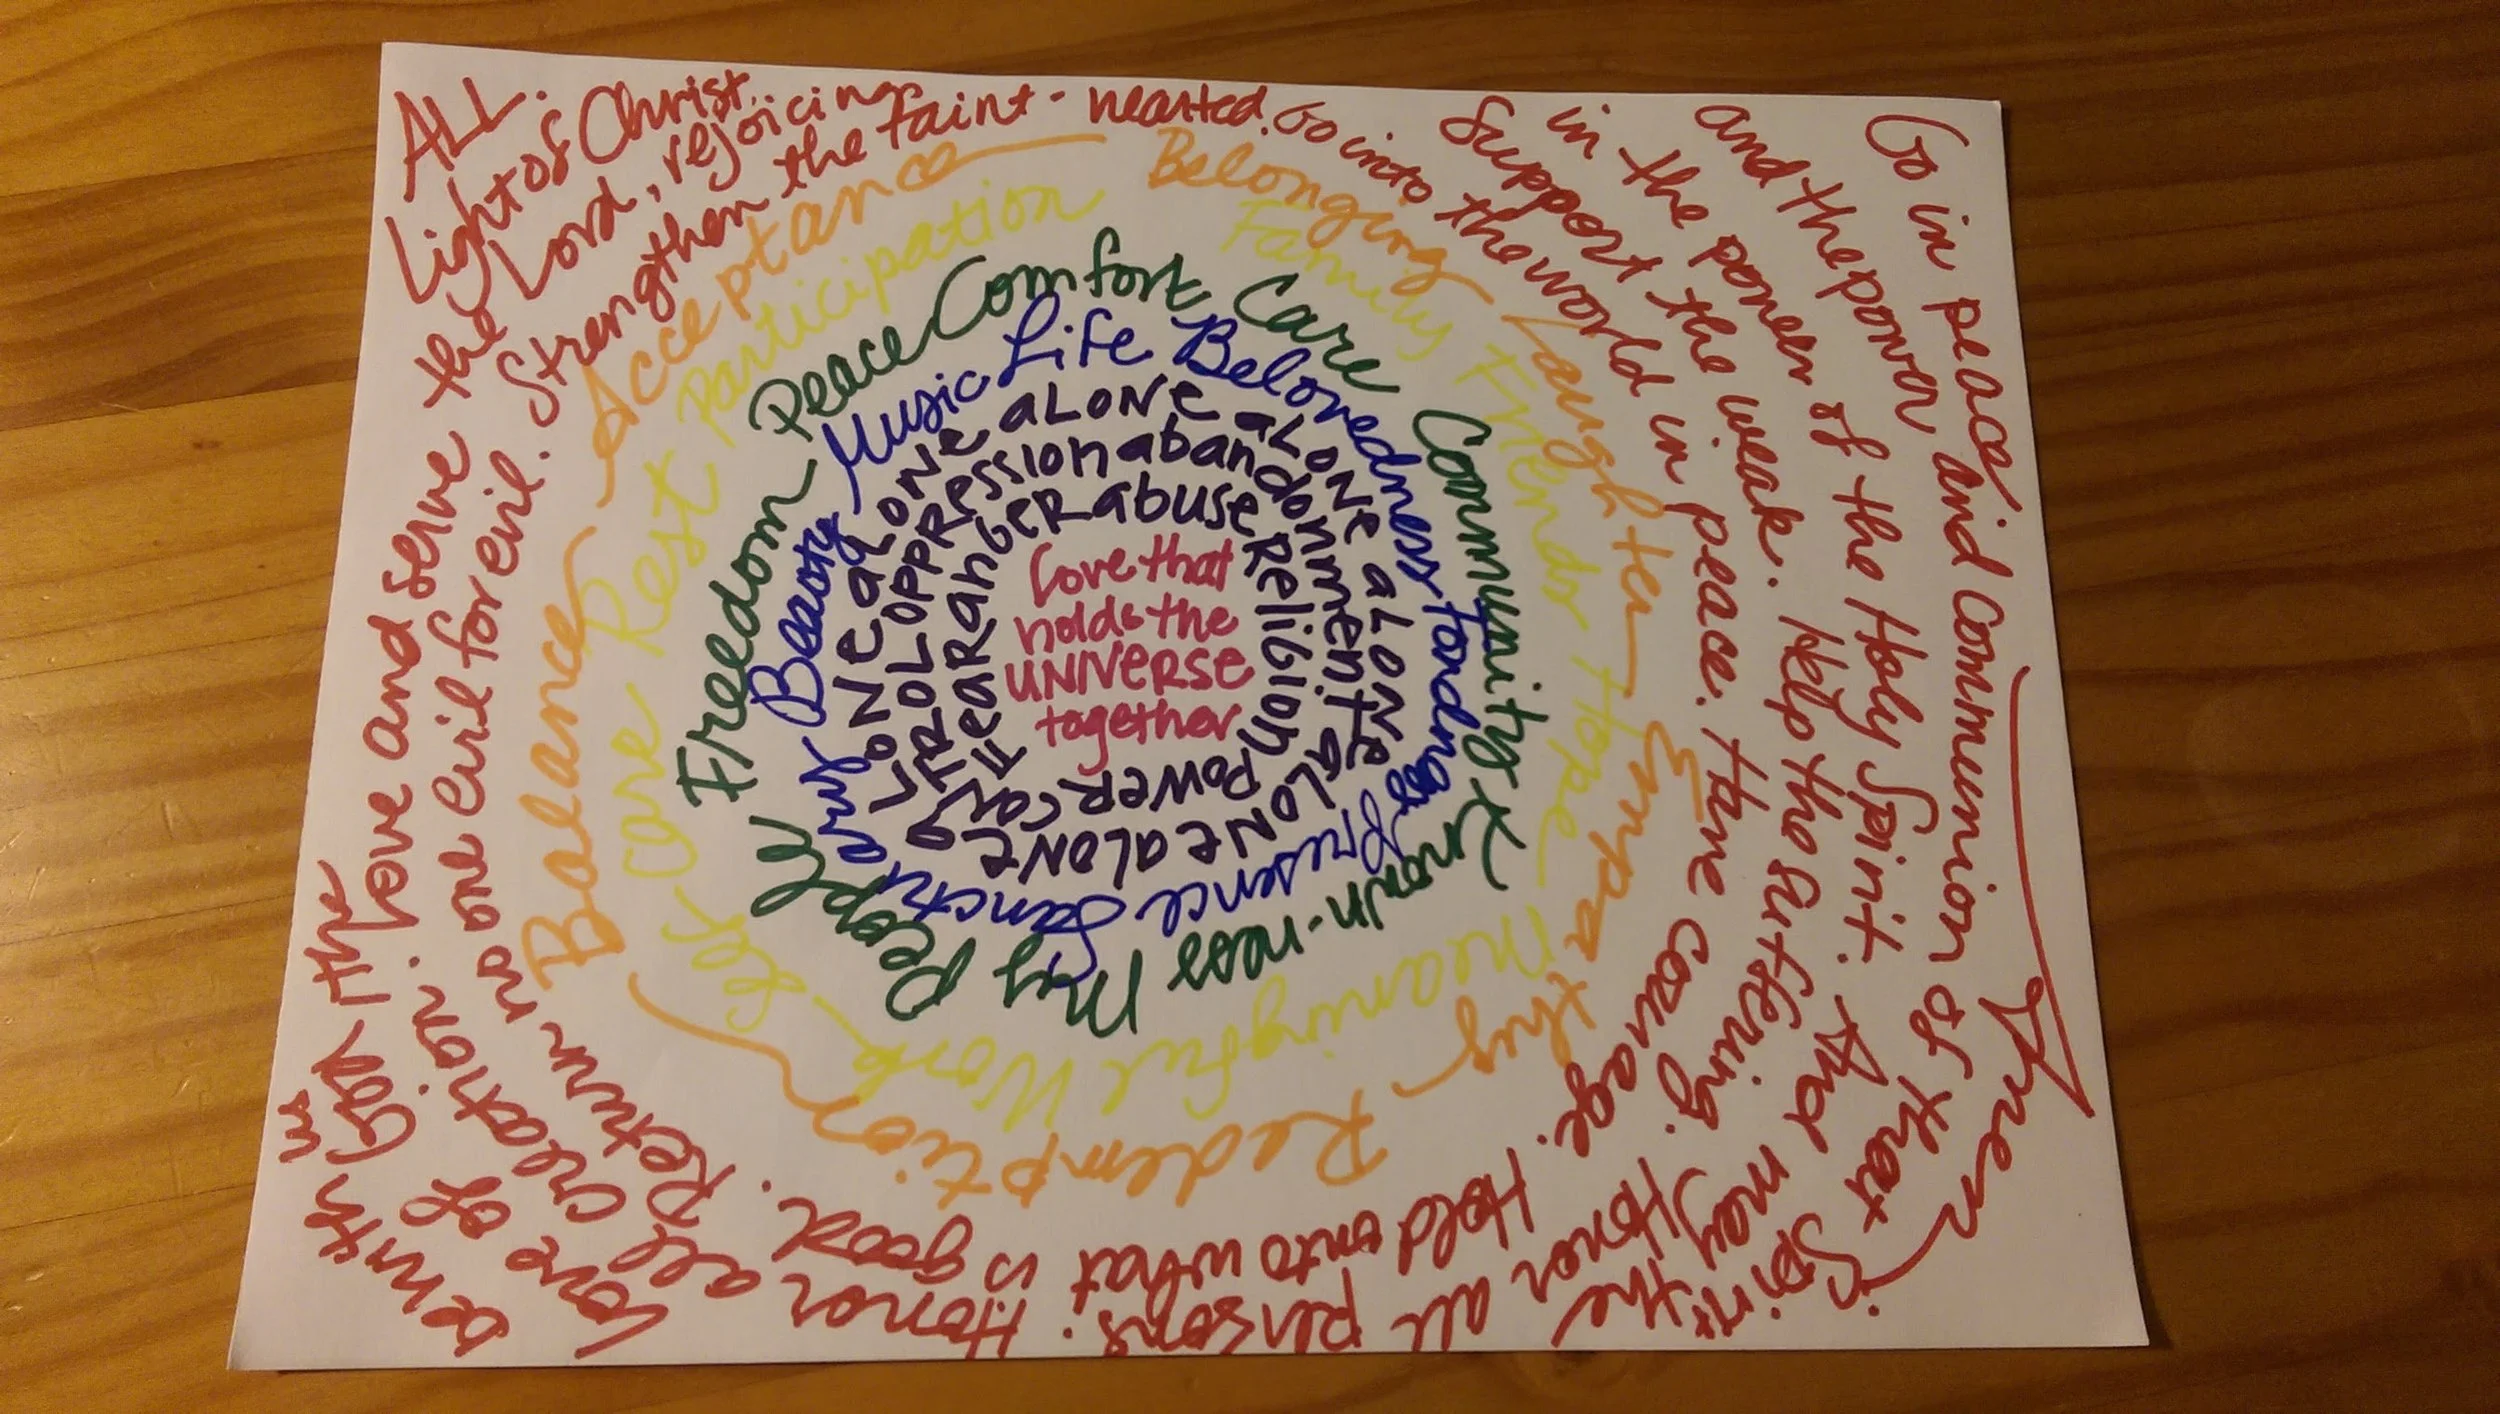 Love that
holds the
UNIVERSE
together.
FeaR anGeR abuse ReLiGion POWER
CONTROL OPPRession abandonment
aLONe aLONe aLONe aLONe aLONe aLONe aLONe aLONe
Beauty Music Life Belovedness Fondness Presence Sanctuary
Freedom Peace Comfort Care Community Known-ness My People
Self care Rest Participation Family Friends Hope Meaningful Work
Balance Acceptance Belonging Laughter Empathy Redemption
Go into the world in peace. Have courage. Hold onto what is good.
Return no one evil for evil. Strengthen the faint-hearted.
Support the weak. Help the suffering. Honor all persons. Honor all creation.
Love and serve the Lord, rejoicing
in the power of the Holy Spirit. And may the love of God the Light of Christ,
and the power and Communion of that Spirit be with us ALL.
Go in peace